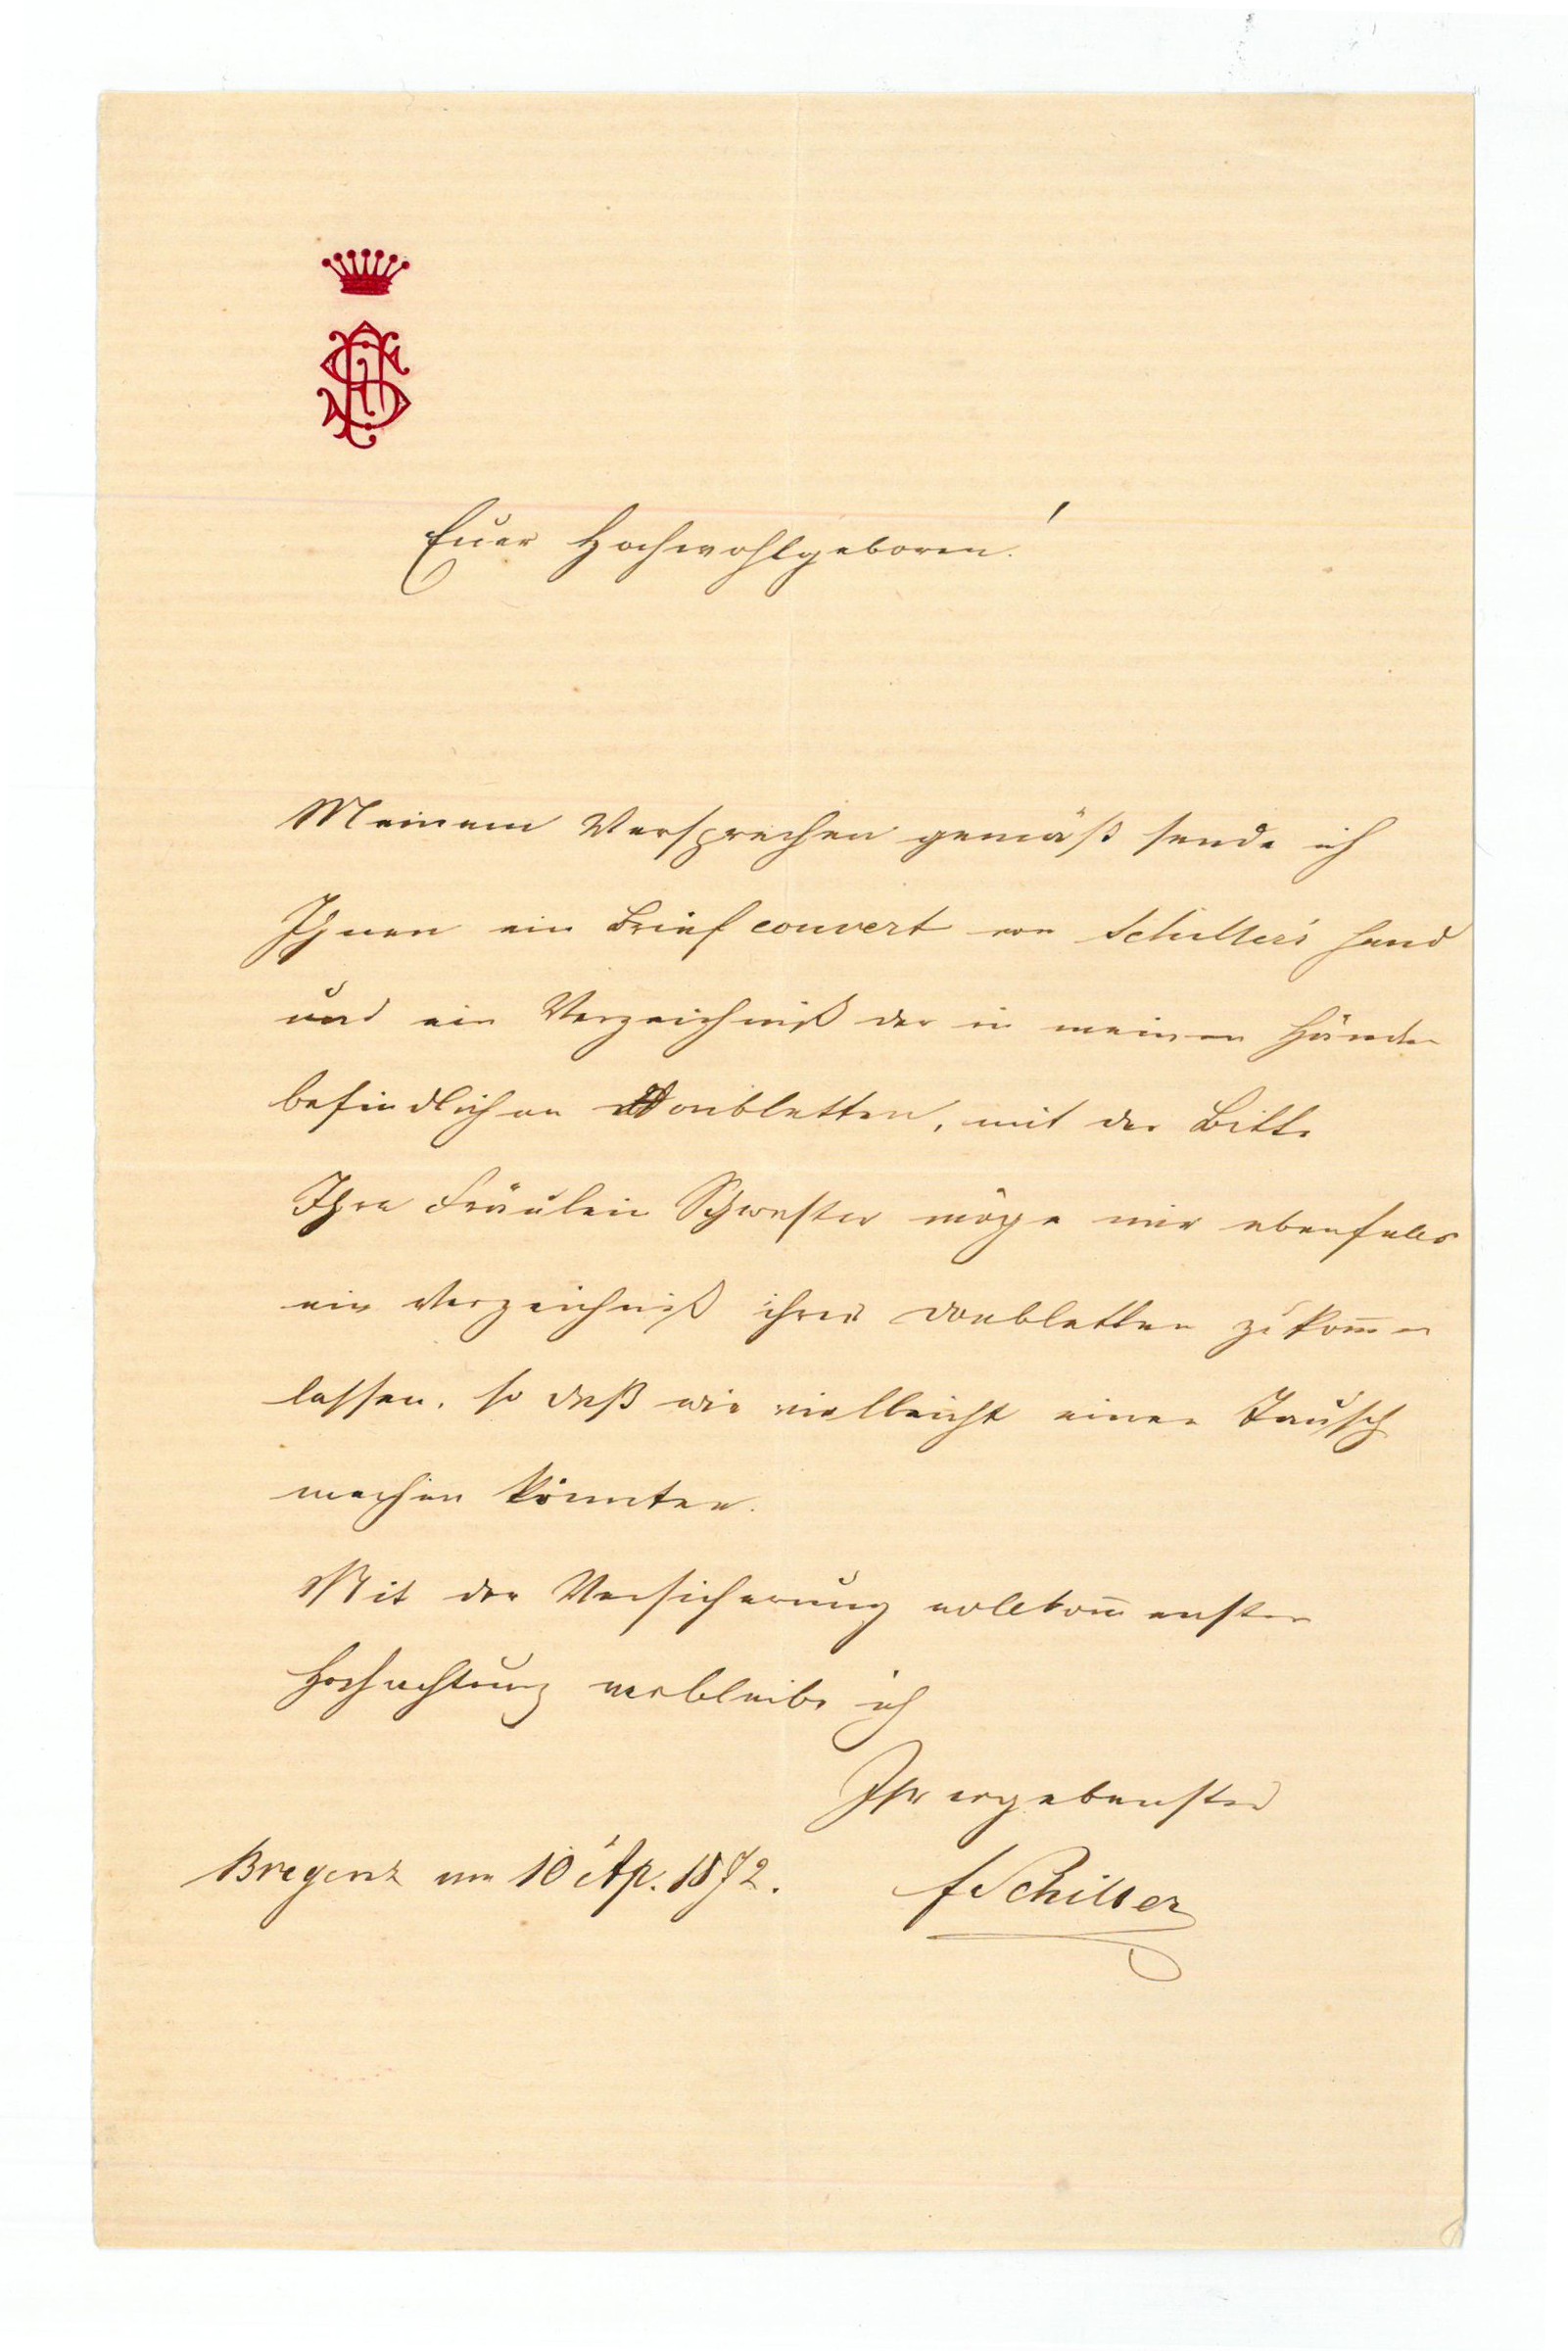 Euer Hochwohlgeboren!
Meinem Versprechen gemäß sende ich
Ihnen ein Briefconvert von Schiller's Hand
und ein Verzeichniß der in meinen Händen
befindlichen Doubletten, mit der Bitte
Ihre Fräulein Schwester möge mir ebenfalls
ein Verzeichniß ihrer Doubletten zukom̅en
lassen, so daß wir vielleicht einen Tausch
machen könnten.
Mit der Versicherung vollkom̅enster
Hochachtung verbleibe ich
Ihr ergebenster
Bregenz am 10 Ap. 1872.
f Schiller